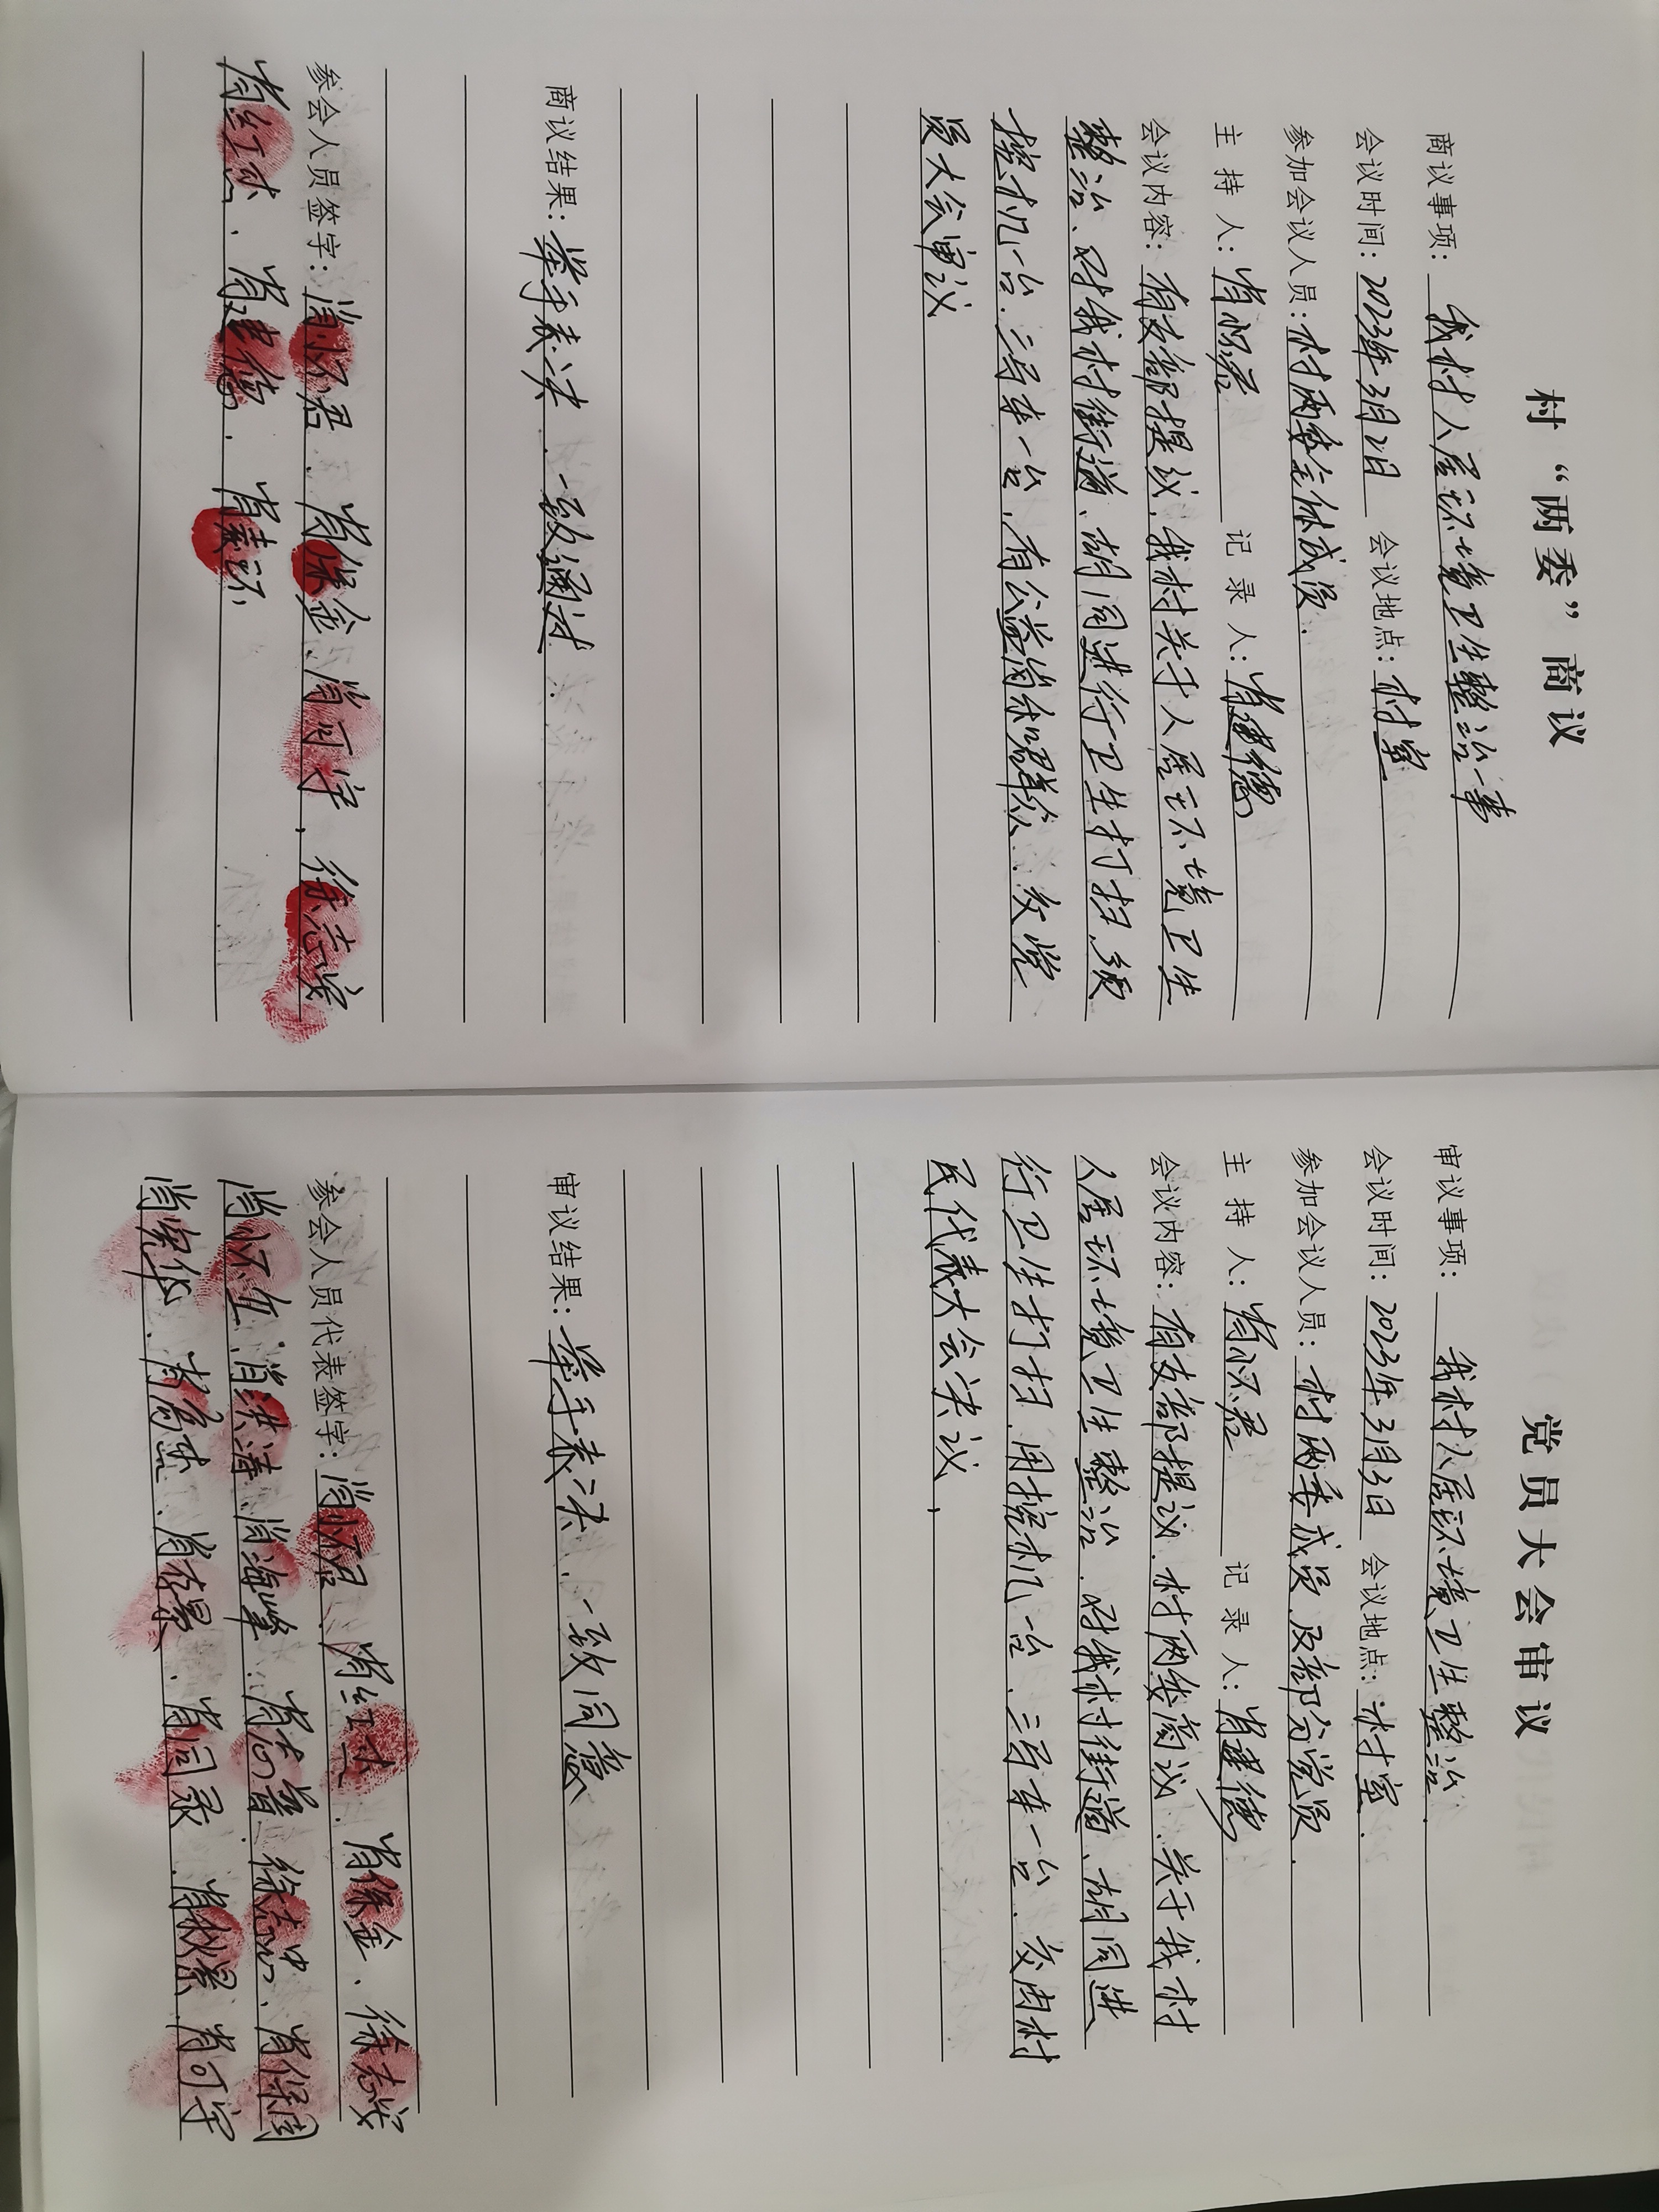 村“两委”商议
商议事项: 我村人居环境卫生整治一事
会议时间: 2023年3月2日 会议地点: 村室
参加会议人员: 村两委全体成员.
主 持 人: 肖怀君 记 录 人: 肖建德
会议内容: 有支部提议,我村关于人居环境卫生
整治、对我村街道、胡同进行卫生打扫,须
挖机一台、三马车一台,有公益岗和群众、交党
员大会审议
商议结果: 举手表决、一致通过.
参会人员签字: 肖怀君、肖保金、肖可宇,徐志安
肖红杰、肖建德、肖素环
党员大会审议
审议事项: 我村人居环境卫生整治.
会议时间: 2023年3月3日 会议地点: 村室.
参加会议人员: 村两委成员、及部分党员.
主 持 人: 肖怀君 记 录 人: 肖建德
会议内容: 有支部提议、村两委商议、关于我村
人居环境卫生整治、对我村街道、胡同进
行卫生打扫、用挖机一台、三马车一台、交由村
民代表大会决议,
审议结果: 举手表决、一致同意
参会人员代表签字: 肖怀君、肖红杰、肖保金、徐志安
肖怀立、肖洪涛、肖海峰、肖志普、徐志忠、肖保周
肖宪华、肖高杰、肖存景、肖同录、肖秋景、肖可宇